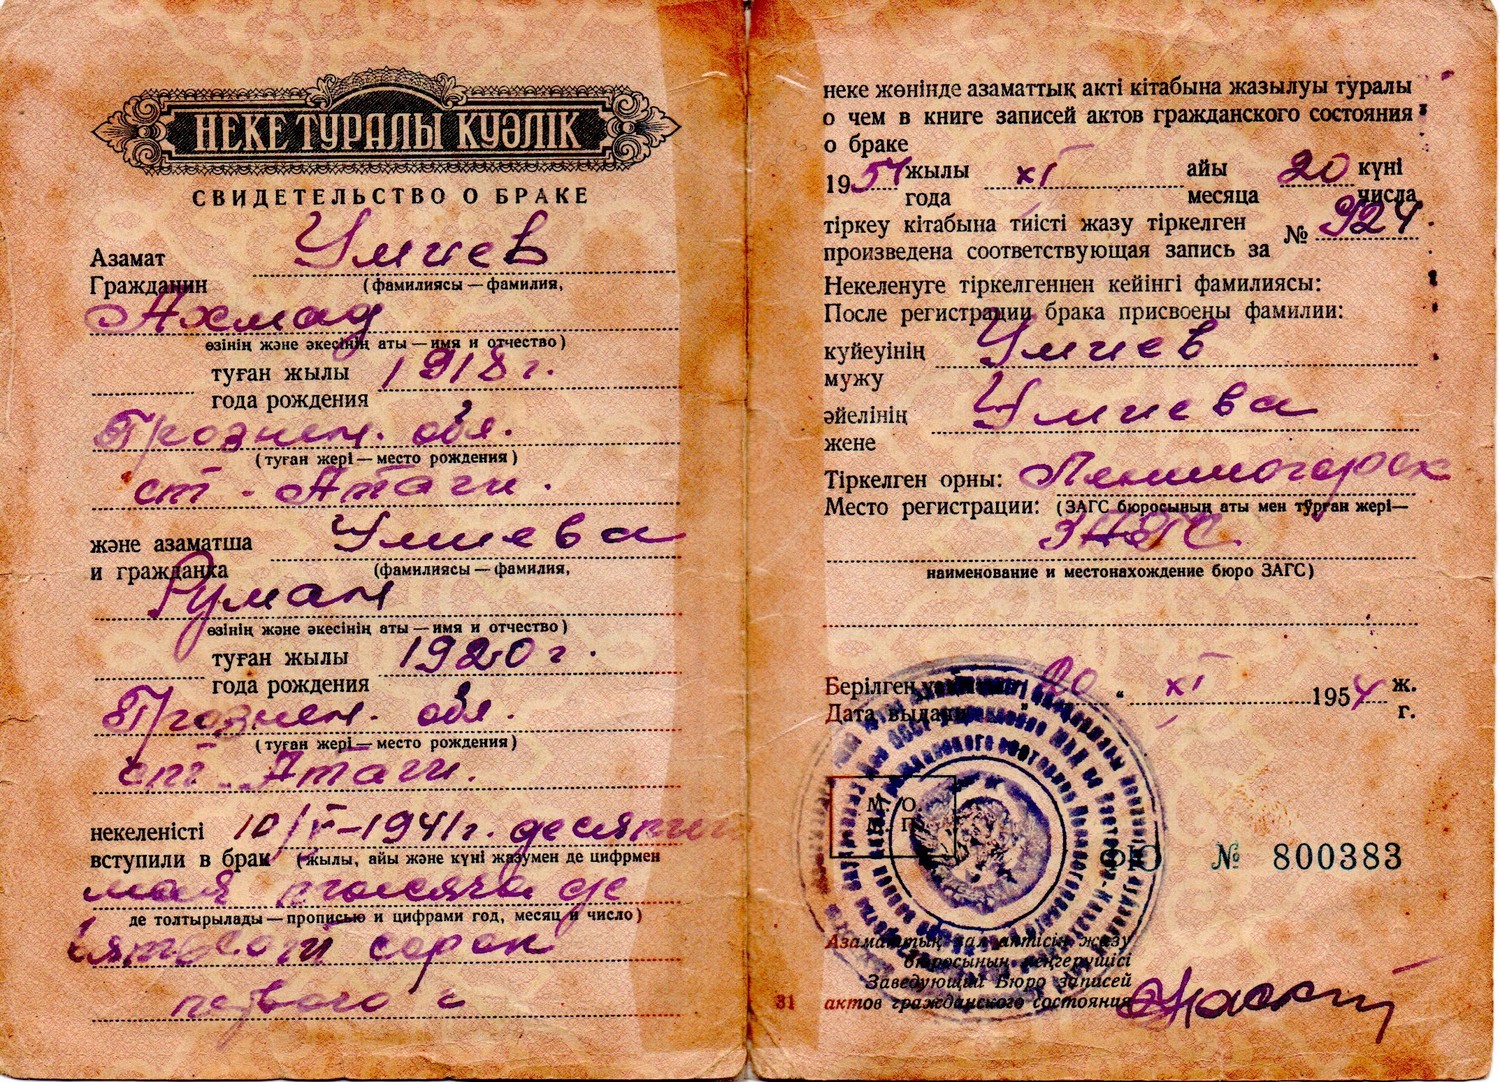 НЕКЕ ТУРАЛЫ КУӘЛІК
СВИДЕТЕЛЬСТВО О БРАКЕ
Азамат Умиев
Гражданин (фамилиясы — фамилия,
Ахмад
өзінің және әкесінің аты — имя и отчество)
туған жылы 1918 г.
года рождения
Грознен. обл.
(туған жері — место рождения)
ст. Атаги.
және азаматша Умиева
и гражданка (фамилиясы — фамилия,
Руман
өзінің және әкесінің аты — имя и отчество)
туған жылы 1920 г.
года рождения
Грознен. обл.
(туған жері — место рождения)
ст. Атаги.
некеленісті 10/V-1941 г. десятого
вступили в брак (жылы, айы және күні жазумен де цифрмен
мая тысяча де
де толтырылады — прописью и цифрами год, месяц и число)
вятьсот сорок
первого г
неке жөнінде азаматтық акті кітабына жазылуы туралы
о чем в книге записей актов гражданского состояния
о браке
1954 жылы XI айы 20 күні
года месяца числа
тіркеу кітабына тиісті жазу тіркелген № 924
произведена соответствующая запись за
Некеленуге тіркелгеннен кейінгі фамилиясы:
После регистрации брака присвоены фамилии:
күйеуінің Умиев
мужу
әйелінің Умиева
жене
Тіркелген орны: Лениногорск
Место регистрации: (ЗАГС бюросының аты мен тұрған жері—
ЗАГС
наименование и местонахождение бюро ЗАГС)
Берілген 20 " XI 1954 ж.
Дата выдачи г.
М. О.
М. П.
ФЮ № 800383
Азаматтық хал актісін жазу
бюросының меңгерушісі
Заведующий Бюро записей
31 актов гражданского состояния